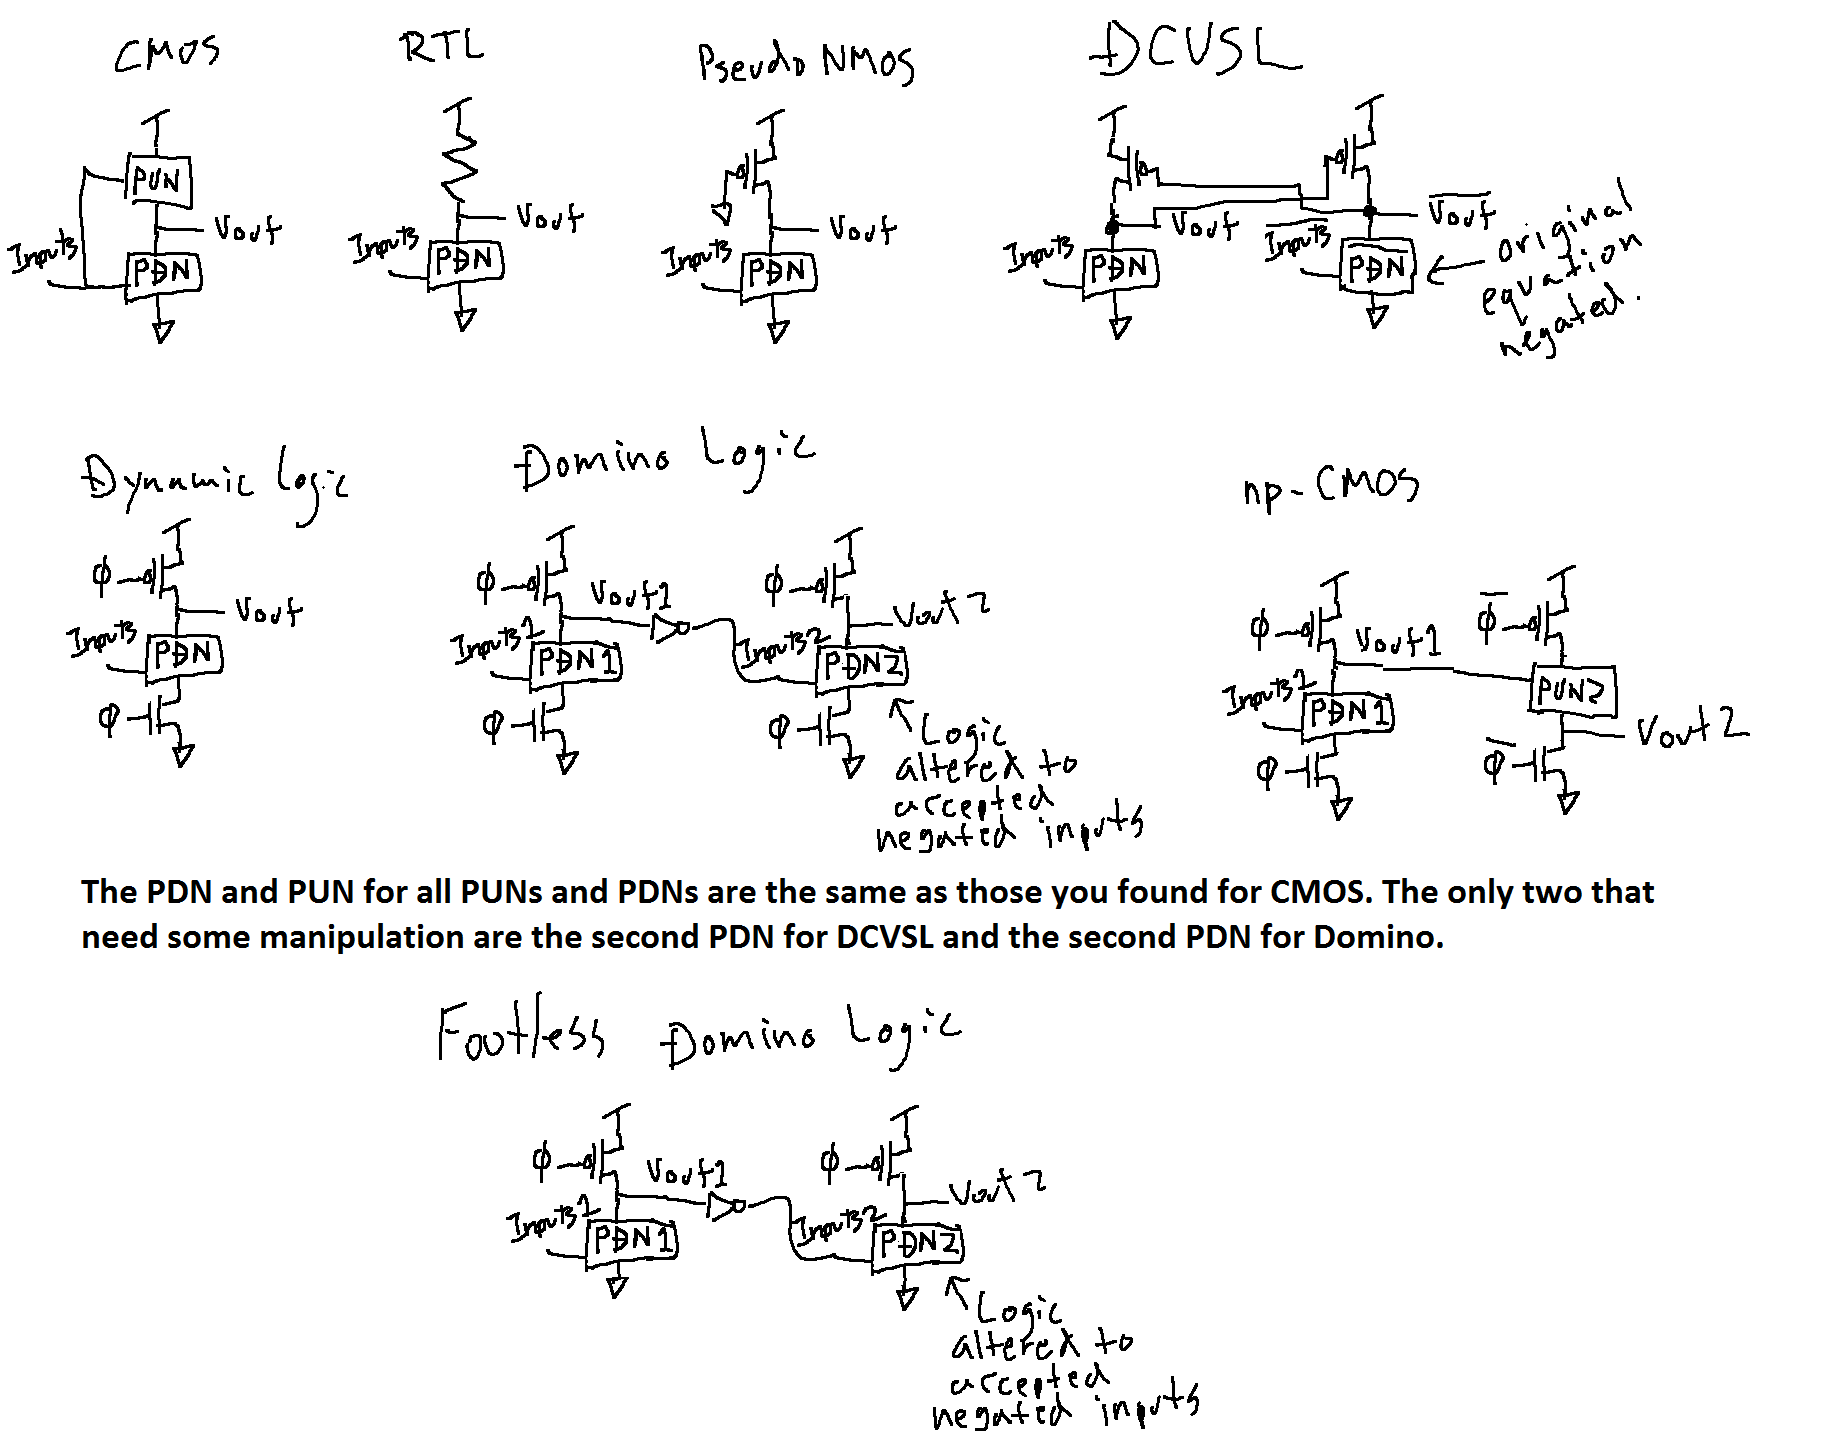 CMOS
RTL
Pseudo NMOS
DCVSL
PUN
Vout
Inputs
PDN
Vout
Inputs
PDN
Vout
Inputs
PDN
Vout
Inputs
PDN
Vout
Inputs
PDN
original
equation
negated.
Dynamic Logic
Domino Logic
np-CMOS
ϕ
Vout
Inputs
PDN
ϕ
ϕ
Vout1
Inputs1
PDN1
ϕ
ϕ
Vout2
Inputs2
PDN2
ϕ
Logic
altered to
accepted
negated inputs
ϕ
Vout1
Inputs1
PDN1
ϕ
ϕ
PUN2
Vout2
ϕ
The PDN and PUN for all PUNs and PDNs are the same as those you found for CMOS. The only two that
need some manipulation are the second PDN for DCVSL and the second PDN for Domino.
Footless Domino Logic
ϕ
Vout1
Inputs1
PDN1
ϕ
Vout2
Inputs2
PDN2
Logic
altered to
accepted
negated inputs